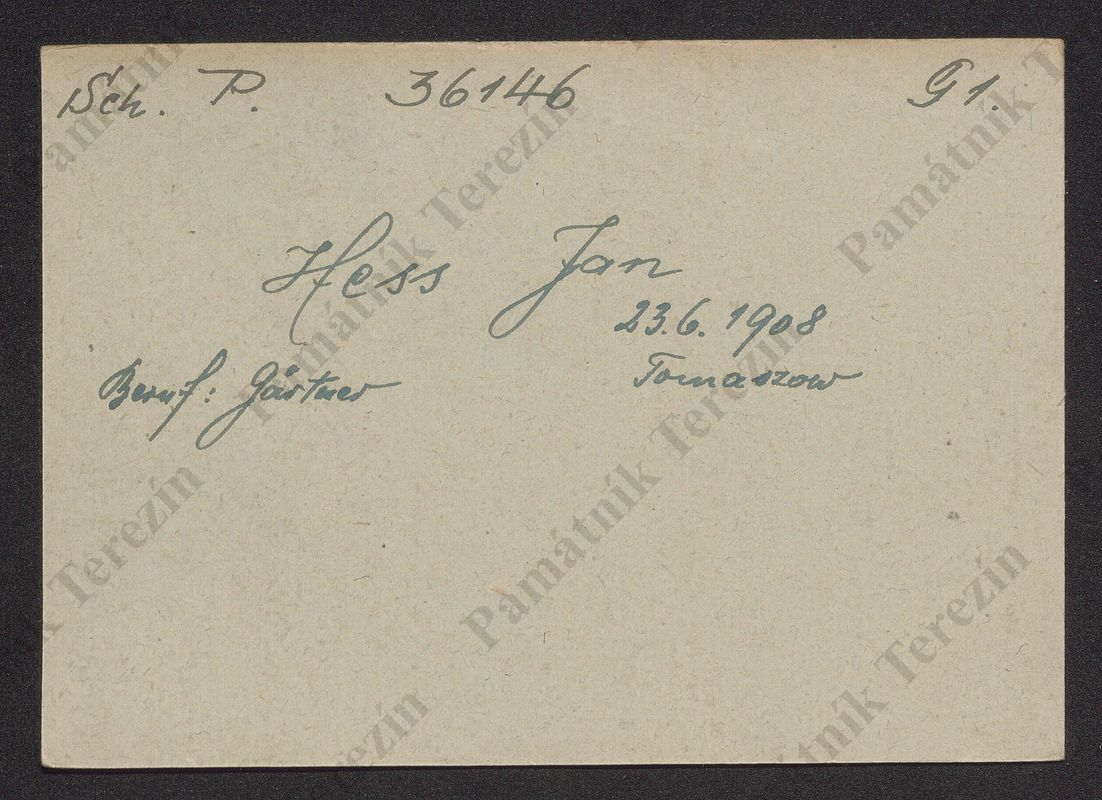 Sch. P. 36146 G 1.
Hess Jan
23.6.1908
Beruf: Gärtner Tomaszow
Památník Terezín
Památník Terezín
Památník Terezín
Památník Terezín
Památník Terezín